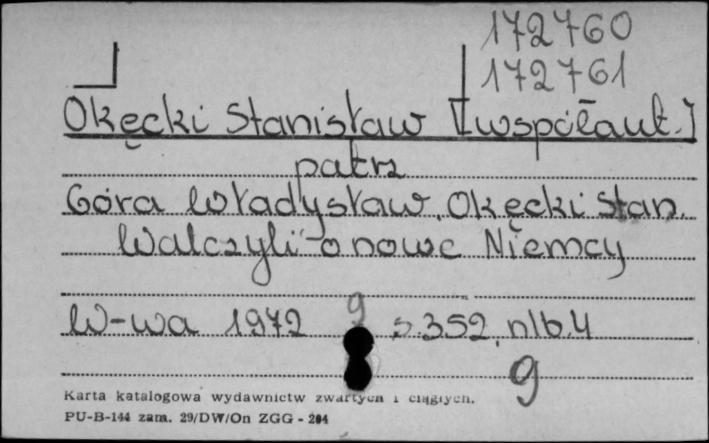 172760
172761
Okęcki Stanisław [współaut.]
patrz
Góra Władysław, Okęcki Stan.
Walczyli o nowe Niemcy
W-wa 1972 9 s.352, nlb.4
9
Karta katalogowa wydawnictw zwartych i ciągłych.
PU-B-144 zam. 29/DW/On ZGG - 204